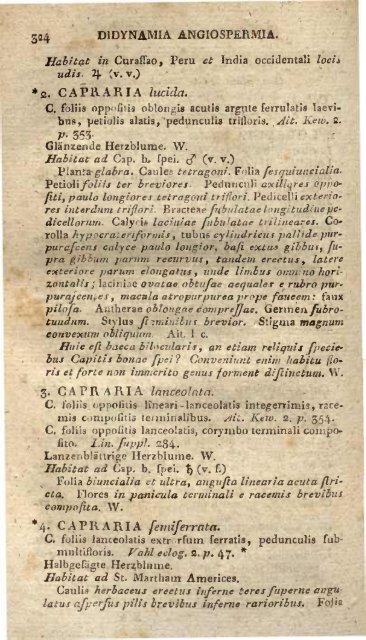 304 DIDYNAMIA ANGIOSPERMIA.
Habitat in Curaſſao, Peru et India occidentali locis
udis. ♃ (v. v.)
*2. CAPRARIA lucida.
C. foliis oppoſitis oblongis acutis argute ſerrulatis laevi-
bus, petiolis alatis, pedunculis trifloris. Ait. Kew. 2.
p. 353.
Glänzende Herzblume. W.
Habitat ad Cap. b. ſpei. ♂ (v. v.)
Planta glabra. Caules tetragoni. Folia ſesquiuncialia.
Petioli foliis ter breviores. Pedunculi axillares oppo-
ſiti, paulo longiores tetragoni triflori. Pedicelli exterio-
res interdum triflori. Bracteae ſubulatae longitudine pe-
dicellorum. Calycis laciniae ſubulatae trilineares. Co-
rolla hypocrateriformis, tubus cylindricus pallide pur-
puraſcens calyce paulo longior, baſi extus gibbus, ſu-
pra gibbum parum recurvus, tandem erectus, latere
exteriore parum elongatus, unde limbus omnino hori-
zontalis; laciniae ovatae obtuſae aequales e rubro pur-
puraſcentes, macula atropurpurea prope faucem: faux
piloſa. Antherae oblongae compreſſae. Germen ſubro-
tundum. Stylus ſtaminibus brevior. Stigma magnum
convexum obliquum. Ait. l c.
Huic eſt bacca bilocularis, an etiam reliquis ſpecie-
bus Capitis bonae ſpei? Conveniunt enim habitu flo-
ris et forte non immerito genus forment diſtinctum. W.
3. CAPRARIA lanceolata.
C. foliis oppoſitis lineari-lanceolatis integerrimis, race-
mis compoſitis terminalibus. Ait. Kew. 2. p. 354.
C. foliis oppoſitis lanceolatis, corymbo terminali compo-
ſito. Lin. ſuppl. 284.
Lanzenblättrige Herzblume. W.
Habitat ad Cap. b. ſpei. ♄ (v. ſ.)
Folia biuncialia et ultra, anguſta linearia acuta ſtri-
cta. Flores in panicula terminali e racemis brevibus
compoſita. W.
*4. CAPRARIA ſemiſerrata.
C. foliis lanceolatis extrorſum ſerratis, pedunculis ſub-
multifloris. Vahl eclog. 2. p. 47. *
Halbgeſägte Herzblume.
Habitat ad St. Martham Americes.
Caulis herbaceus erectus inferne teres ſuperne angu-
latus aſperſus pilis brevibus inferne rarioribus. Folia